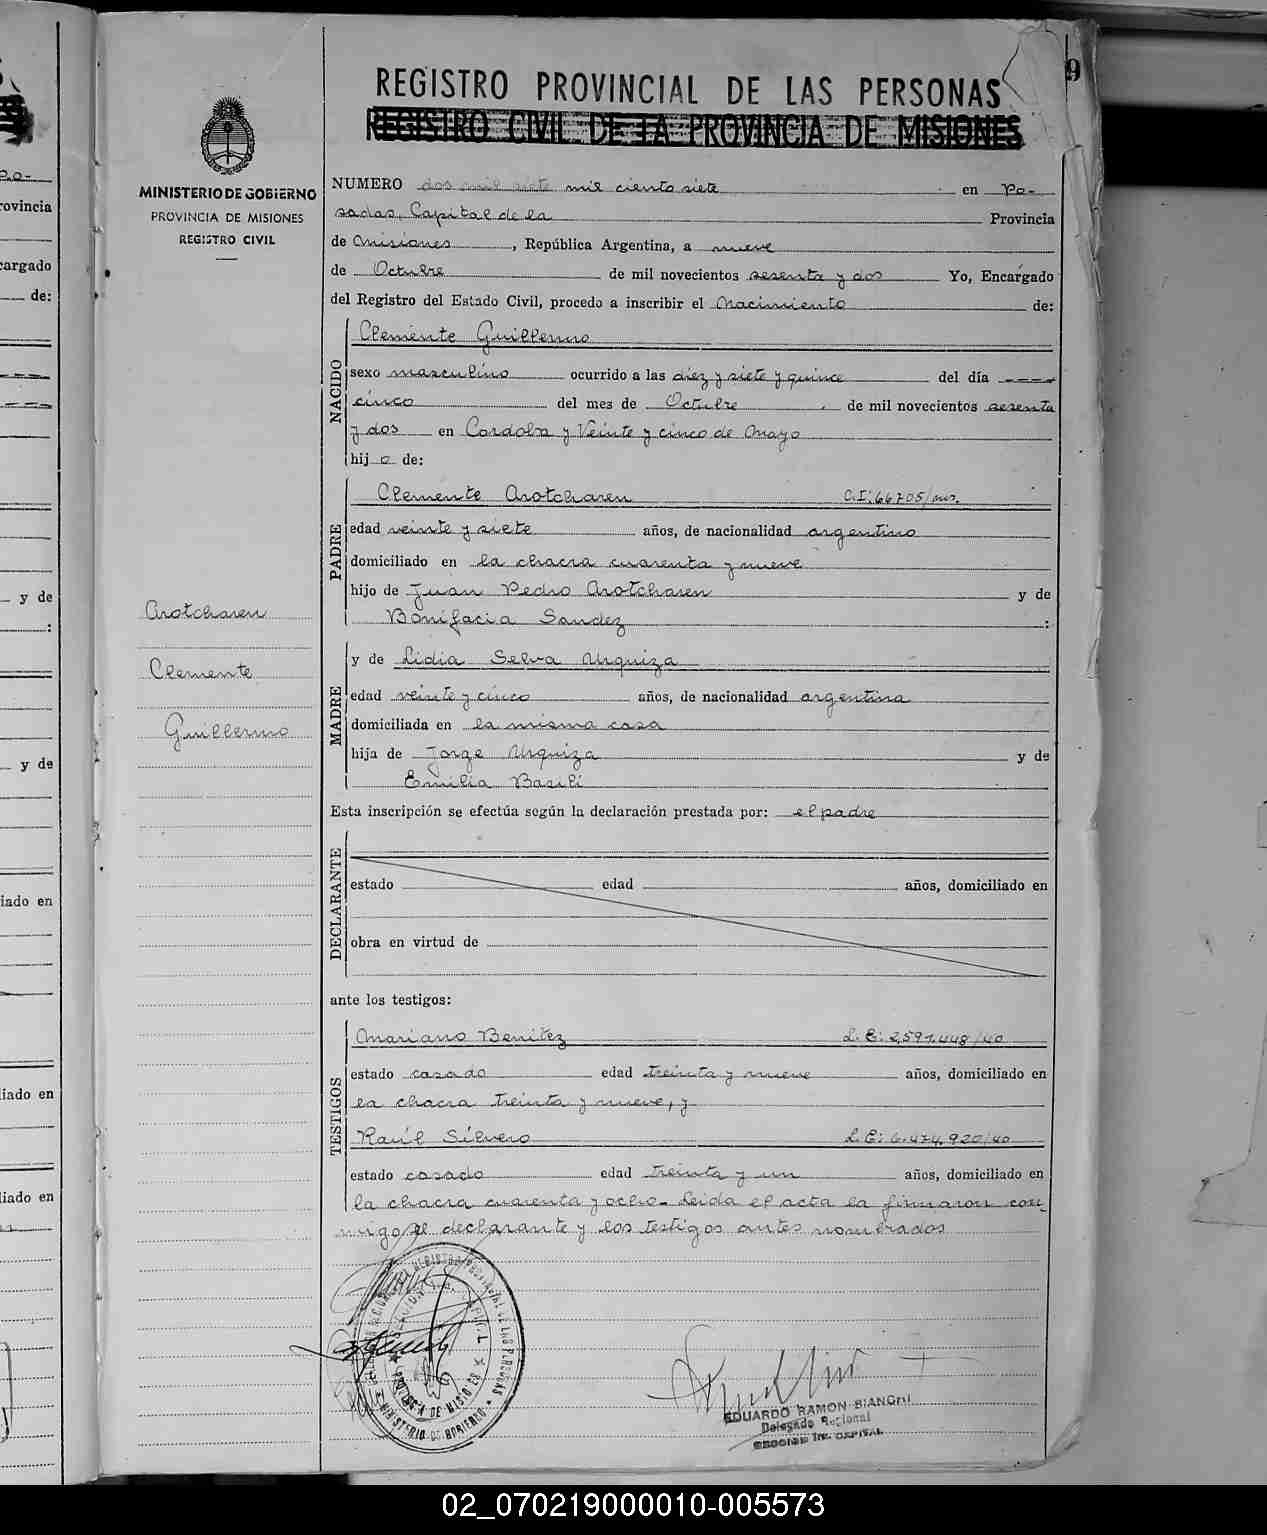 9
REGISTRO PROVINCIAL DE LAS PERSONAS
REGISTRO CIVIL DE LA PROVINCIA DE MISIONES
MINISTERIO DE GOBIERNO
PROVINCIA DE MISIONES
REGISTRO CIVIL
NUMERO dos mil siete mil ciento siete en Po-
sadas, Capital de la Provincia
de Misiones, República Argentina, a nueve
de Octubre de mil novecientos sesenta y dos Yo, Encargado
del Registro del Estado Civil, procedo a inscribir el Nacimiento de:
NACIDO
Clemente Guillermo
sexo masculino ocurrido a las diez y siete y quince del día ----
cinco del mes de Octubre de mil novecientos sesenta
y dos en Cordoba y Veinte y cinco de Mayo
hijo de:
PADRE
Clemente Arotcharen C.I: 66705/mis.
edad veinte y siete años, de nacionalidad argentino
domiciliado en la chacra cuarenta y nueve
hijo de Juan Pedro Arotcharen y de
Bonifacia Sandez :
MADRE
y de Lidia Selva Urquiza
edad veinte y cinco años, de nacionalidad argentina
domiciliada en la misma casa
hija de Jorge Urquiza y de
Emilia Basili
Arotcharen
Clemente
Guillermo
Esta inscripción se efectúa según la declaración prestada por: el padre
DECLARANTE
estado edad años, domiciliado en
obra en virtud de
ante los testigos:
TESTIGOS
Mariano Benitez L. E: 2,597.448/40
estado casado edad treinta y nueve años, domiciliado en
la chacra treinta y nueve, y
Raúl Silvero L. E: 6.474.920/40
estado casado edad treinta y un años, domiciliado en
la chacra cuarenta y ocho- Leida el acta la firmaron con-
migo el declarante y los testigos antes nombrados
MINISTERIO DE GOBIERNO
PROVINCIA DE MISIONES
EDUARDO RAMON BIANCHI
Delegado Regional
SECCION 1ra. CAPITAL
y de
:
y de
ovincia
cargado
de:
iado en
iado en
iado en
02_070219000010-005573